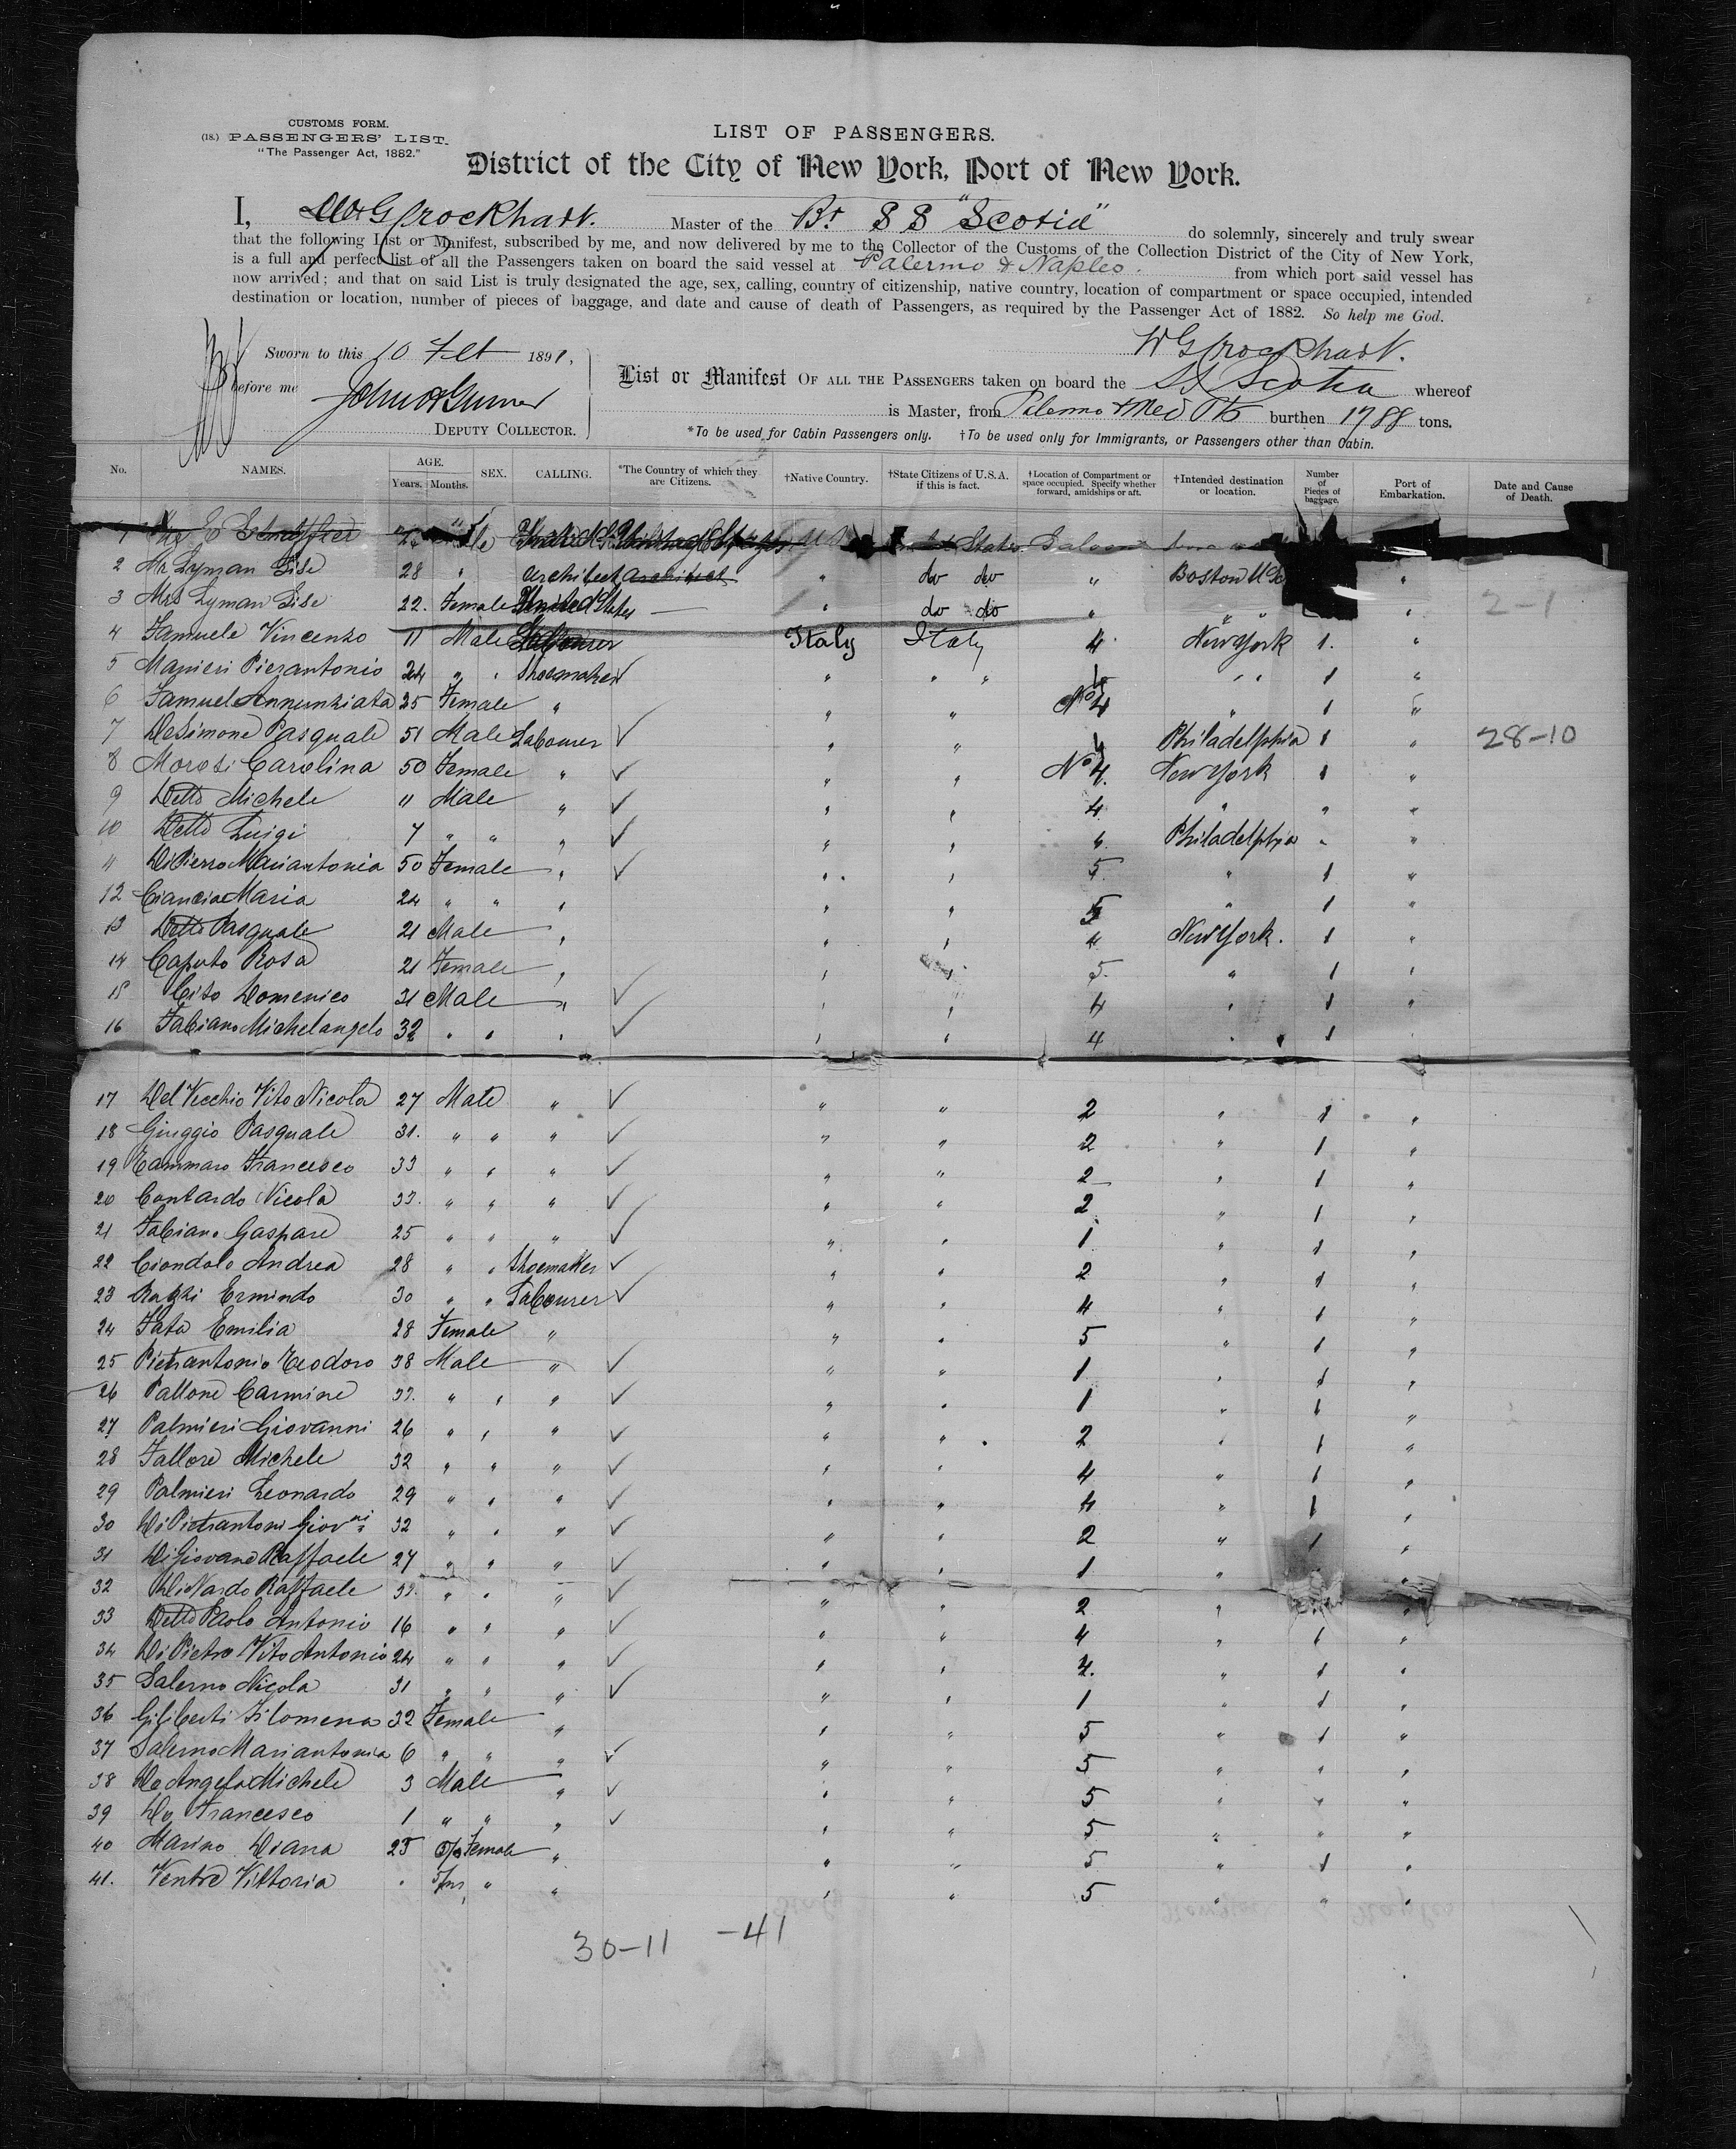 CUSTOMS FORM.
(18.) PASSENGERS' LIST.
"The Passenger Act, 1882."
LIST OF PASSENGERS.
District of the City of New York, Port of New York.
I, Master of the Br. S S "Scotia" do solemnly, sincerely and truly swear
that the following List or Manifest, subscribed by me, and now delivered by me to the Collector of the Customs of the Collection District of the City of New York,
is a full and perfect list of all the Passengers taken on board the said vessel at Palermo & Naples. from which port said vessel has
now arrived; and that on said List is truly designated the age, sex, calling, country of citizenship, native country, location of compartment or space occupied, intended
destination or location, number of pieces of baggage, and date and cause of death of Passengers, as required by the Passenger Act of 1882. So help me God.
Sworn to this 10 Feb 1891,
before me
DEPUTY COLLECTOR.
List or Manifest OF ALL THE PASSENGERS taken on board the SS Scotia whereof
is Master, from Palermo & Med Pts burthen 1788 tons.
*To be used for Cabin Passengers only. †To be used only for Immigrants, or Passengers other than Cabin.
No. NAMES. AGE. Years. Months. SEX. CALLING. *The Country of which they are Citizens. †Native Country. †State Citizens of U.S.A. if this is fact. †Location of Compartment or space occupied. Specify whether forward, amidships or aft. †Intended destination or location. Number of Pieces of baggage. Port of Embarkation. Date and Cause of Death.
1 States Saloon
2 Mr Lyman Sise 28 " Architect architect " do do " Boston "
3 Mrs Lyman Sise 22. Female United States " do do " " " 2-1
4 Samuele Vincenzo 11 Male Labourer Italy Italy 4 New York 1. "
5 Manieri Pierantonio 24 " " Shoemaker ✓ " " " " " 1 "
6 Samuel Annunziata 25 Female " " " No 4 " 1 "
7 DeSimone Pasquale 51 Male Labourer ✓ " " 4 Philadelphia 1 " 28-10
8 Morosi Carolina 50 Female " ✓ " " No 4. New York 1 "
9 Detto Michele 11 Male " ✓ " " 4 " " "
10 Detto Luigi 7 " " " ✓ " " 4. Philadelphia " "
11 DiPierro Mariantonia 50 Female " ✓ " " 5 " 1 "
12 Ciancia Maria 24 " " " " " 5 " 1 "
13 Detto Pasquale 21 Male " " " 4 New York. 1 "
14 Caputo Rosa 21 Female " " " 5. " 1 "
15 Cito Domenico 31 Male " ✓ " " 4 " 1 "
16 Fabiano Michelangelo 32 " " " ✓ " " 4 " 1 "
17 Del Vecchio Vito Nicola 27 Male " ✓ " " 2 " 1 "
18 Giuggio Pasquale 31. " " " ✓ " " 2 " 1 "
19 Tammaro Francesco 33 " " " ✓ " " 2 " 1 "
20 Contardo Nicola 33. " " " ✓ " " 2 " 1 "
21 Fabiano Gaspare 25 " " " ✓ " " 1 " 1 "
22 Ciondolo Andrea 28 " " Shoemaker ✓ " " 2 " 1 "
23 Razzi Ermindo 30 " " Labourer ✓ " " 4 " 1 "
24 Fata Emilia 28 Female " " " 5 " 1 "
25 Pietrantonio Teodoro 38 Male " ✓ " " 1 " 1 "
26 Pallone Carmine 33. " " " ✓ " " 1 " 1 "
27 Palmieri Giovanni 26 " " " ✓ " " 2 " 1 "
28 Fallore Michele 32 " " " ✓ " " 4 " 1 "
29 Palmieri Leonardo 29 " " " ✓ " " 4 " 1 "
30 Di Pietrantoni Giovni 32 " " " ✓ " " 2 " 1 "
31 Di Giovano Raffaele 27 " " " ✓ " " 1 " "
32 DiNardo Raffaele 33. " " " ✓ " " 2 " "
33 Detto Paolo Antonio 16 " " " ✓ " " 4 " 1 "
34 Di Pietro Vito Antonio 24 " " " ✓ " " 4. " 1 "
35 Salerno Nicola 31 " " " ✓ " " 1 " 1 "
36 Giliberti Filomena 32 Female " " " 5 " 1 "
37 Salerno Mariantonia 6 " " " ✓ " " 5 " " "
38 De Angelo Michele 3 Male " ✓ " " 5 " " "
39 Do Francesco 1 " " " ✓ " " 5 " " "
40 Marino Diana 25 Female " " " 5 " 1 "
41. Ventre Vittoria " 5/m " " " " 5 " " "
30-11 -41